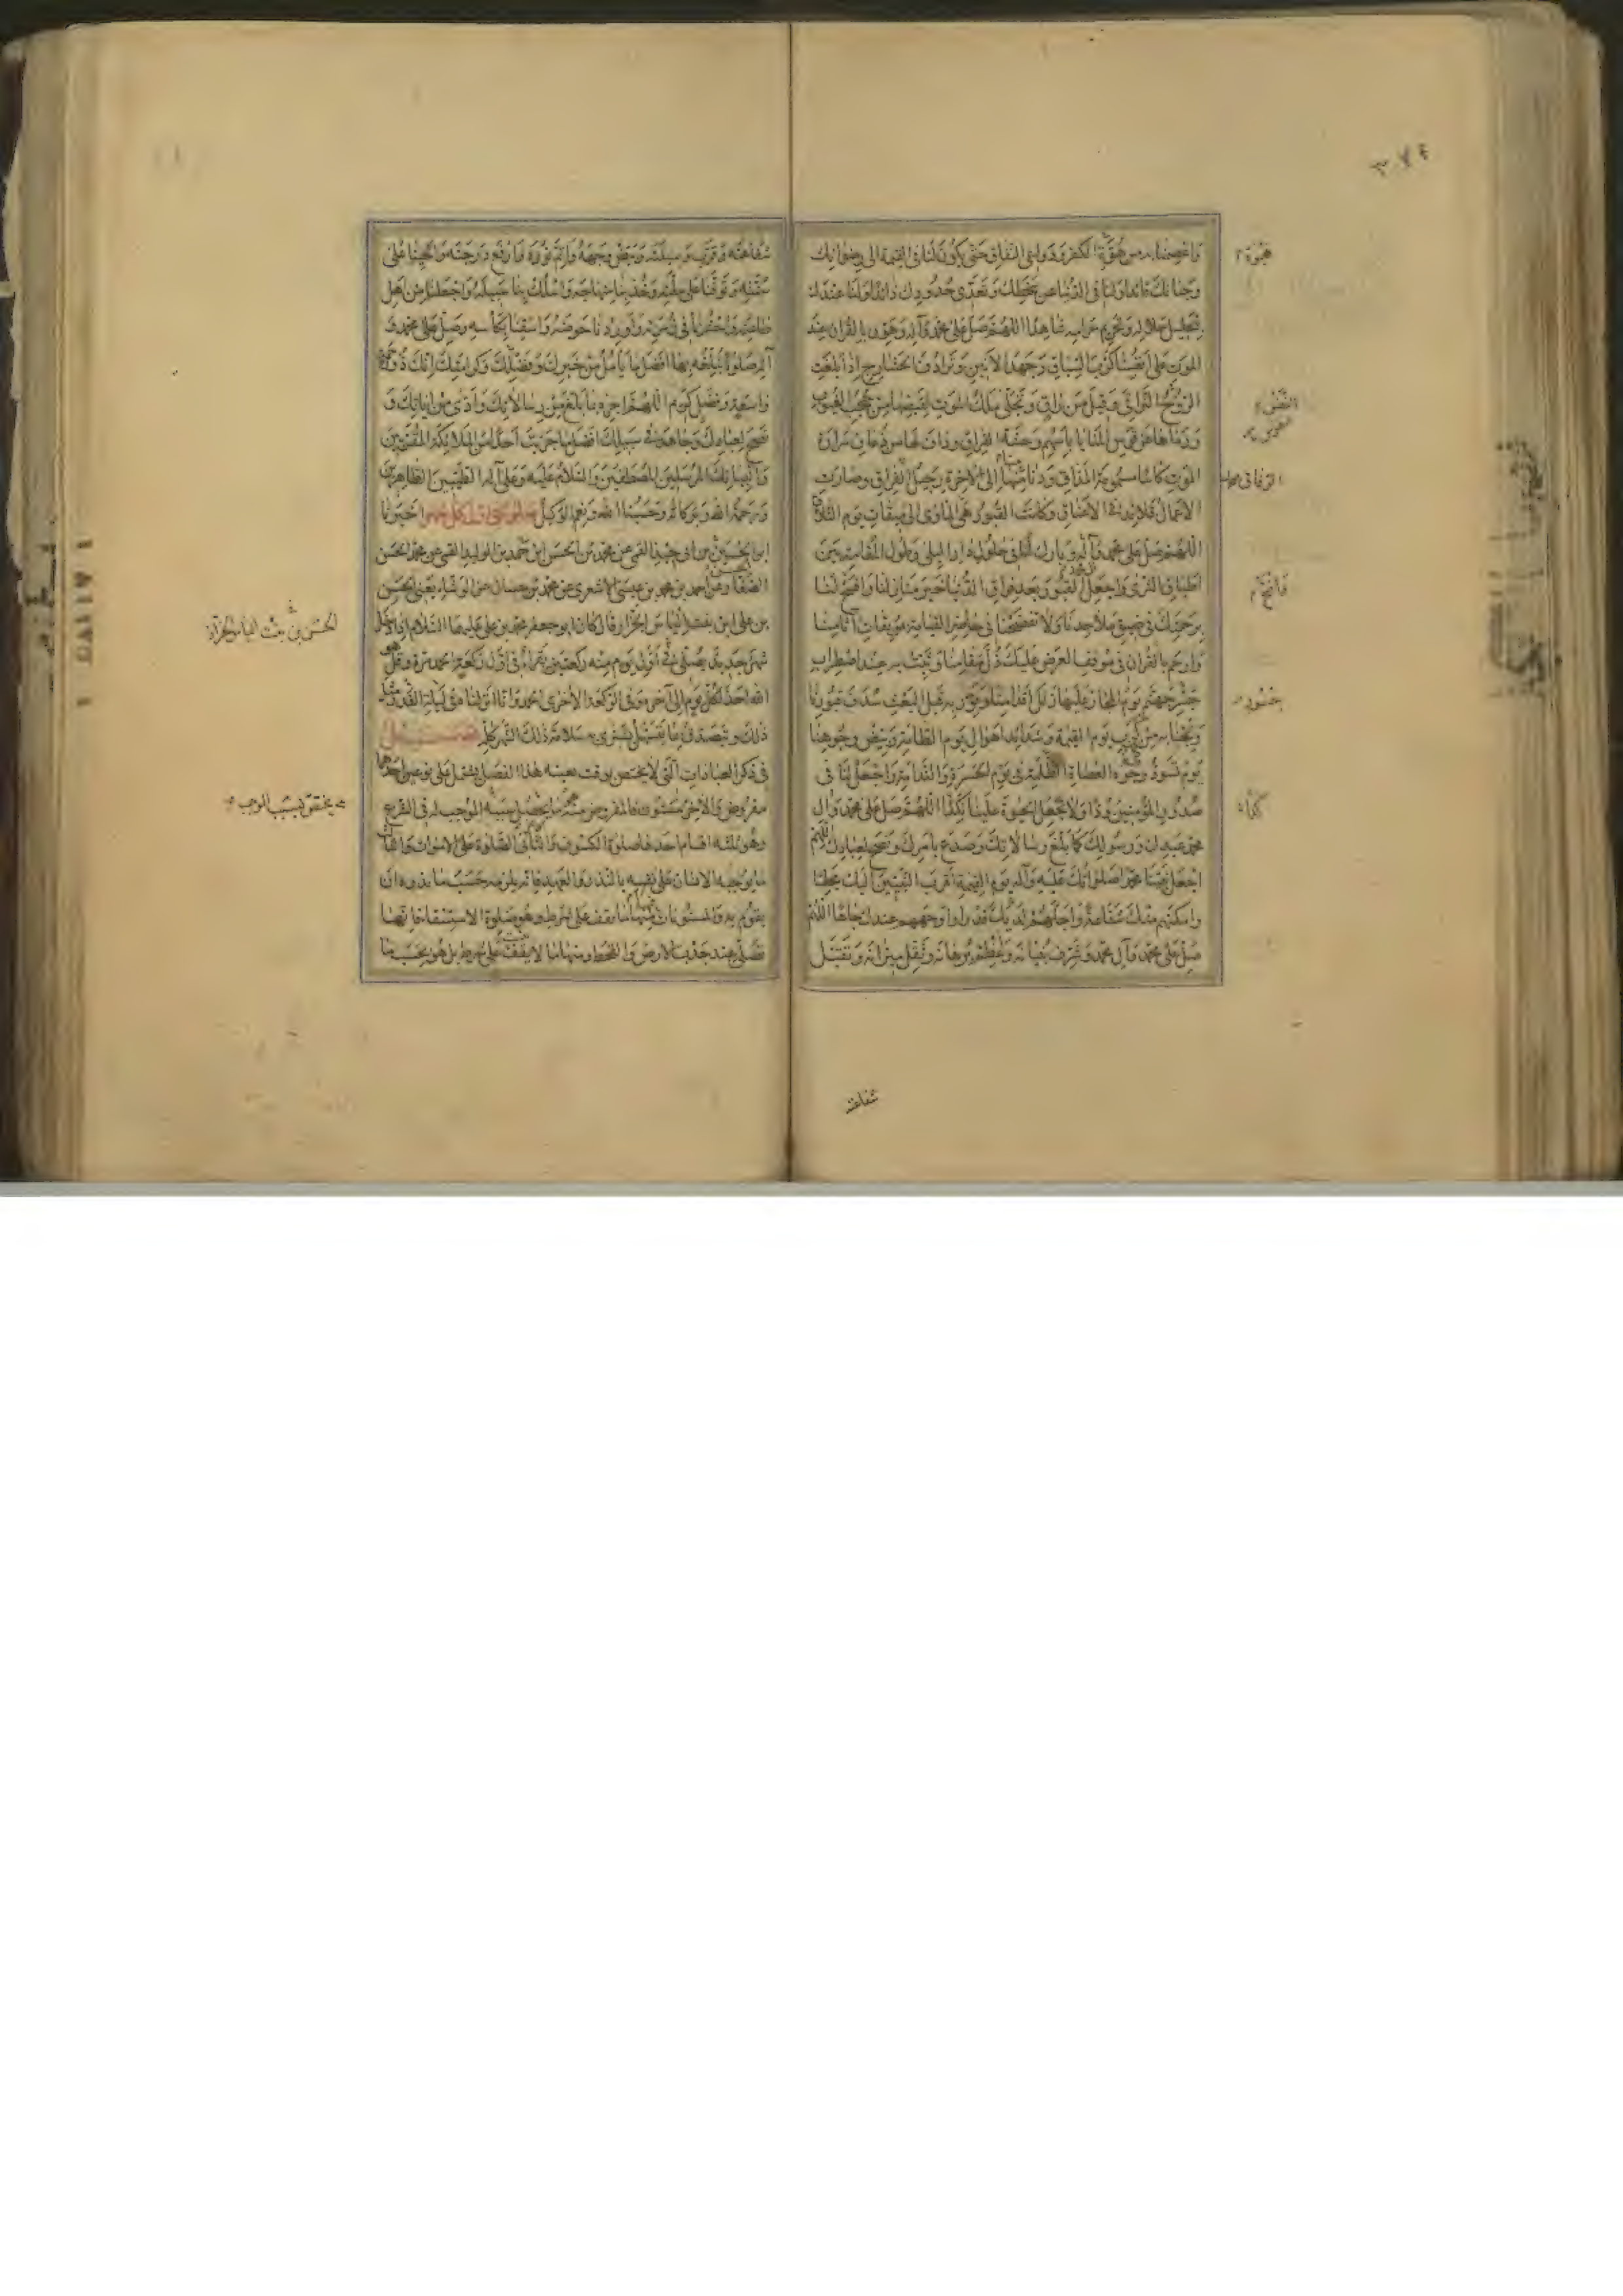 ٣٧٤
واعصمنا به من هوة الكفر ودواعي النفاق حتى يكون لنا في القيمة إلى رضوانك
وجنانك قائدا ولنا في الدنيا عن سخطك وتعدي حدودك ذائدا ولنا عندك
بتحليل حلاله وتحريم حرامه شاهدا اللهم صل على محمد وآله وهون بالقرآن عند
الموت على أنفسنا كرب السياق وجهد الأنين وترادف الحشارج إذا بلغت
النفوس التراقي وقيل من راق وتجلى ملك الموت لقبضها من حجب الغيوب
ورماها عن قوس المنايا بأسهم وحشة الفراق وداف لها من ذعاف مرارة
الموت كأسا مسمومة المذاق ودنا منا إلى الآخرة رحيل الفراق وصارت
الأعمال قلائد في الأعناق وكانت القبور هي المأوى إلى ميقات يوم التلاق
اللهم صل على محمد وآله وبارك لنا في حلول دار البلى وطول المقامة بين
أطباق الثرى واجعل القبور بعد فراق الدنيا خير منازلنا وافسح لنا
برحمتك في ضيق ملاحدنا ولا تفضحنا في حاضر القيامة بموبقات آثامنا
وارحم بالقرآن في موقف العرض عليك ذل مقامنا وثبت به عند اضطراب
جسر جهنم يوم المجاز عليها زلل أقدامنا ونور به قبل البعث سدف قبورنا
ونجنا به من كرب يوم القيمة وشدائد أهوال يوم الطامة وبيض وجوهنا
يوم تسود وجوه العصاة الظلمة في يوم الحسرة والندامة واجعل لنا في
صدور المؤمنين ودا ولا تجعل الحيوة علينا نكدا اللهم صل على محمد وآل
محمد عبدك ورسولك كما بلغ رسالاتك وصدع بأمرك ونصح لعبادك اللهم
اجعل نبينا محمدا صلواتك عليه وآله يوم القيمة أقرب النبيين إليك مجلسا
وأمكنهم منك شفاعة وأجلهم لديك قدرا وأوجههم عندك جاها اللهم
صل على محمد وآل محمد وشرف بنيانه وعظم برهانه وثقل ميزانه وتقبل
شفاعته
شفاعته وقرب وسيلته وبيض وجهه وأتم نوره وارفع درجته وأحينا على
سنته وتوفنا على ملته وخذ بنا منهاجه واسلك بنا سبيله واجعلنا من أهل
طاعته واحشرنا في زمرته وأوردنا حوضه واسقنا بكأسه وصل على محمد و
آله صلوة تبلغه بها أفضل ما يأمل من خيرك وفضلك وكرامتك إنك ذو رحمة
واسعة وفضل كريم اللهم اجزه بما بلغ من رسالاتك وأدى من آياتك و
نصح لعبادك وجاهد في سبيلك أفضل ما جزيت أحدا من الملائكة المقربين
وأنبيائك المرسلين المصطفين والسلام عليه وعلى آله الطيبين الطاهرين
ورحمة الله وبركاته وحسبنا الله ونعم الوكيل صلوة أول كل شهر أخبرنا
ابن أبي جيد القمي عن محمد بن الحسن ابن أحمد بن الوليد القمي عن محمد بن الحسن
الصفار عن أحمد بن محمد بن عيسى الأشعري عن محمد بن حسان عن الوشاء يعني الحسن
بن علي ابن بنت إلياس الخزاز قال كان أبو جعفر محمد بن علي عليهما السلام إذا دخل
شهر جديد يصلي في أول يوم منه ركعتين يقرأ في أول ركعة الحمد مرة وقل هو
الله أحد لكل يوم إلى آخره وفي الركعة الأخرى الحمد وإنا أنزلناه في ليلة القدر مثل
ذلك ويتصدق بما يتسهل يشتري به سلامة ذلك الشهر كله فصل
في ذكر العبادات التي لا يختص بوقت بعينه هذا الفصل يشتمل على نوعين أحدهما
مفروض والآخر مسنون فالمفروض منه ما يحصل سببه الموجب له في الشرع
وهو ثلثة أقسام أحدها صلوة الكسوف والثاني الصلوة على الأموات والثالث
ما يوجبه الإنسان على نفسه بالنذر والعهد فإنه يلزمه حسب ما نذره أن
يقوم به والمسنونات منها ما يقف على شرط وهو صلوة الاستسقاء فإنها
تصلى عند جدب الأرض والقحط ومنها ما لا يقف على شرط بل هو بحسب ما
الحسن بن بنت الياس الخزاز